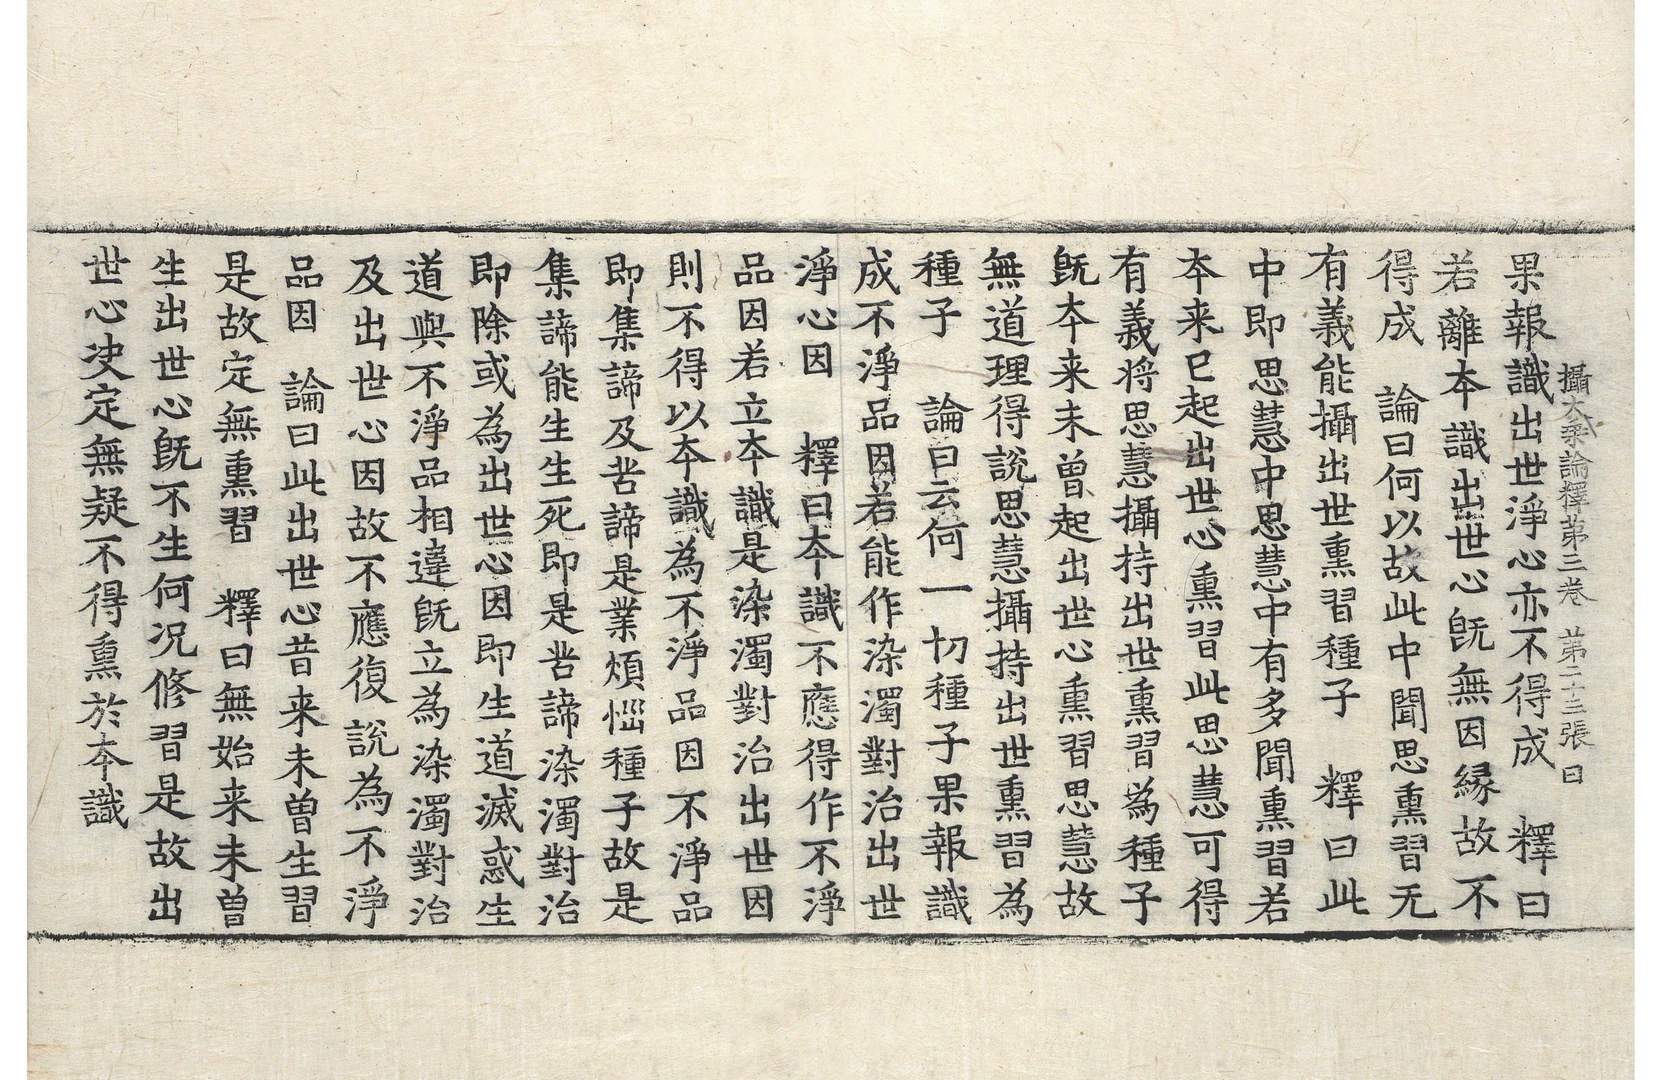 攝大乗論釋苐三卷 苐二十三張 曰
果報識出世淨心亦不得成 釋曰
若離夲識出世心旣無因縁故不
得成 論曰何以故此中聞思熏習无
有義能攝出世熏習種子 釋曰此
中即思慧中思慧中有多聞熏習若
夲来已起出世心熏習此思慧可得
有義將思慧攝持出世熏習為種子
旣夲来未曾起出世心熏習思慧故
無道理得說思慧攝持出世熏習為
種子 論曰云何一切種子果報識
成不淨品因若能作染濁對治出世
淨心因 釋曰夲識不應得作不淨
品因若立夲識是染濁對治出世因
則不得以夲識為不淨品因不淨品
即集諦及苦諦是業煩惱種子故是
集諦能生生死即是苦諦染濁對治
即除或為出世心因即生道滅惑生
道與不淨品相違旣立為染濁對治
及出世心因故不應復說為不淨
品因 論曰此出世心昔来未曾生習
是故定無熏習 釋曰無始来未曾
生出世心旣不生何况修習是故出
世心决定無疑不得熏於夲識